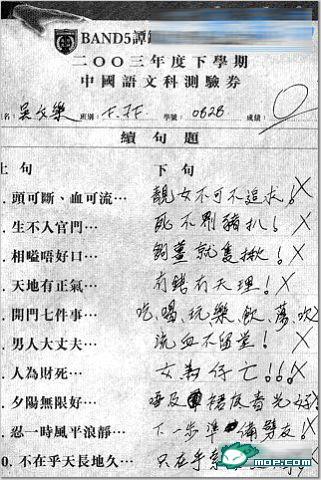 BAND5譚
二〇〇三年度下學期
中國語文科測驗券
姓名：吳文樂 班別：F.3F 學號：0828 成績：0
續句題
上句 下句
. 頭可斷、血可流… 靚女不可不追求！X
. 生不入官門… 死不劏豬扒！X
. 相嗌唔好口… 就隻揪！X
. 天地有正氣… 有錢有天理！X
. 開門七件事… 吃、喝、玩、樂、飲、蕩、吹
. 男人大丈夫… 流血不留堂！X
. 人為財死… 女為仔亡！！！X
. 夕陽無限好… 唔及
. 忍一時風平浪靜… 下一步準備劈友！X
0. 不在乎天長地久… 只在乎
mop.com